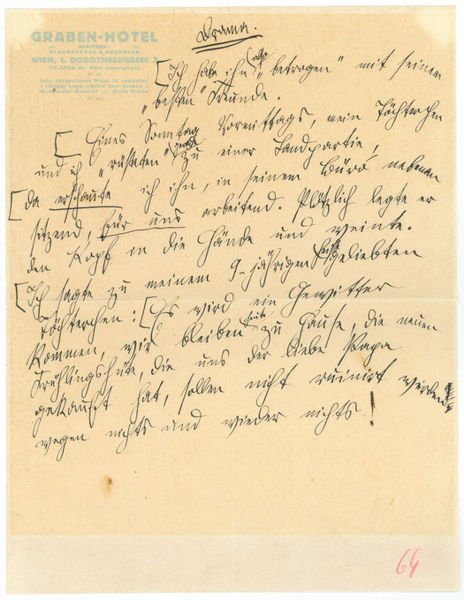 Drama.
GRABEN-HOTEL
BESITZER:
WIEN, I. DOROTHEERGASSE 3
[Ich habe ihn also "betrogen" mit seinem
"besten" Freunde.
[Eines Sonntag Vormittags, mein Töchterchen
und ich "rüsteten" gerade zu einer Landpartie,
[da erschaute ich ihn, in seinem Büro nebenan
sitzend, für uns arbeitend. Plötzlich legte er
den Kopf in die Hände und weinte.
[Ich sagte zu meinem 9-jährigen geliebten
Töchterchen: [Es wird ein Gewitter
kommen, wir bleiben heute zu Hause, die neuen
Frühlingshüte, die uns der liebe Papa
gekauft hat, sollen nicht ruinirt werden
wegen nichts und wieder nichts!
64